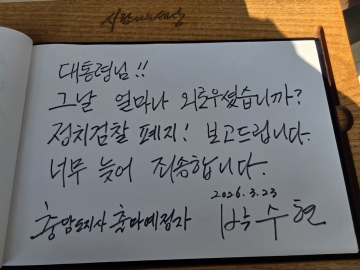 사람사는세상
대통령님!!
그날 얼마나 외로우셨습니까?
정치검찰 폐지! 보고드립니다.
너무 늦어 죄송합니다.
2026.3.23
충남도지사 출마예정자 박수현